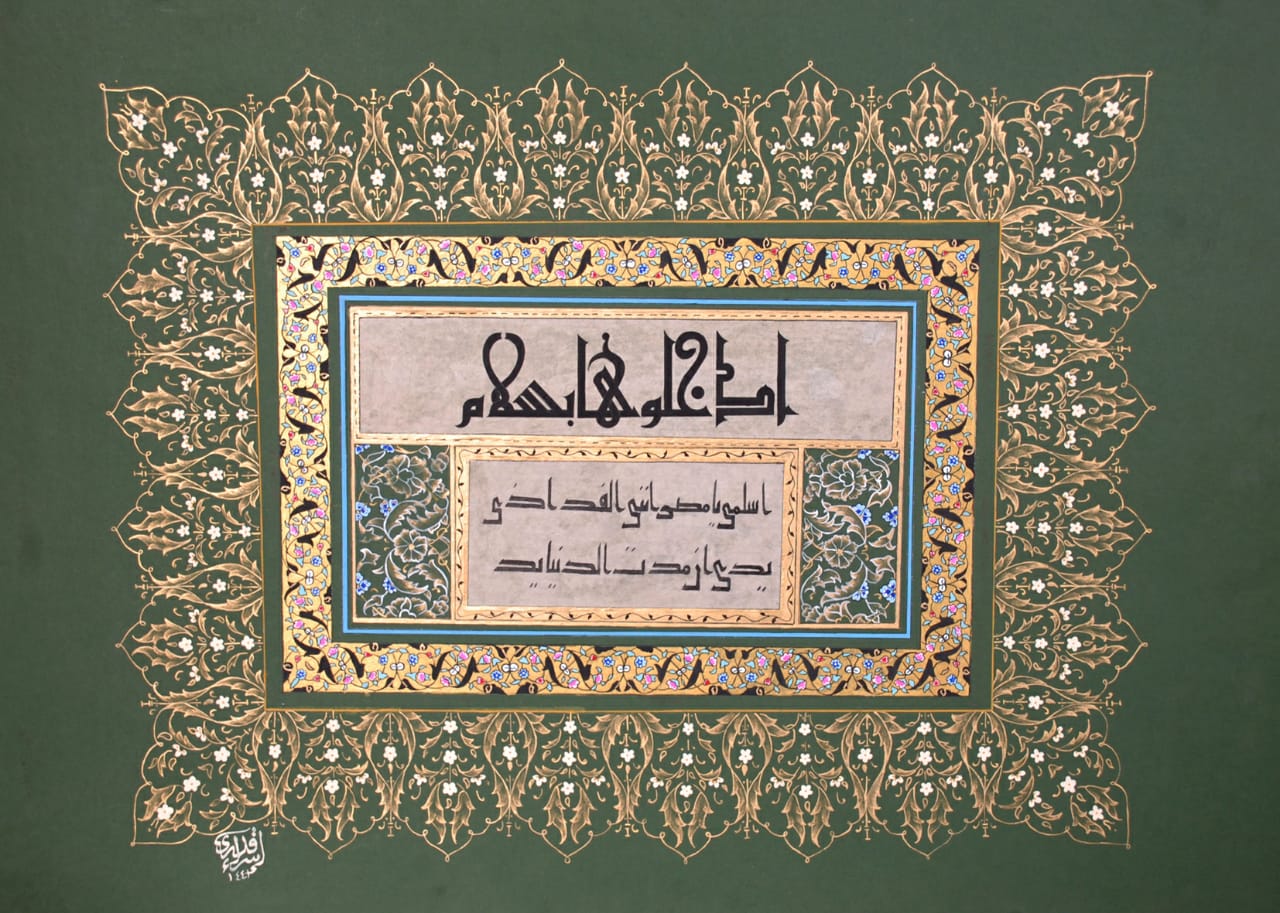 ادخلوها بسلام
اسلمي يا مصر انني الفدا ذي
يدي ان مدت الدنيا يد
إسراء